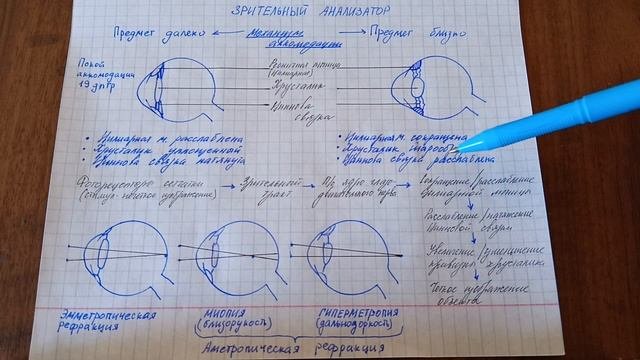 ЗРИТЕЛЬНЫЙ АНАЛИЗАТОР
Предмет далеко ← Механизм аккомодации → Предмет близко
Покой
аккомодации
19 дптр
Ресничная мышца
(цилиарная)
Хрусталик
Циннова
связка
• Цилиарная м. расслаблена
• Хрусталик уплощенный
• Циннова связка натянута
• Цилиарная м. сокращена
• Хрусталик шарооб
• Циннова связка расслаблена
Фоторецепторы сетчатки
(стимул - нечеткое изображение)
→ Зрительный
тракт
→ П/с ядро глазо-
двигательного нерва
→ Сокращение/расслабление
цилиарной мышцы
Расслабление/натяжение
цинновой связки
Увеличение/уменьшение
кривизны хрусталика
Четкое изображение
объекта
Эмметропическая
рефракция
МИОПИЯ
(близорукость)
ГИПЕРМЕТРОПИЯ
(дальнозоркость)
Аметропическая рефракция